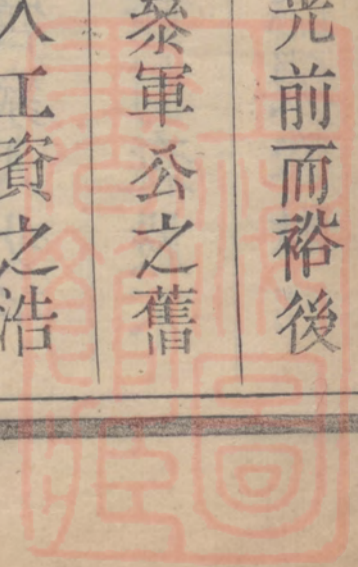 光前而裕後
參軍公之舊
人工資之浩